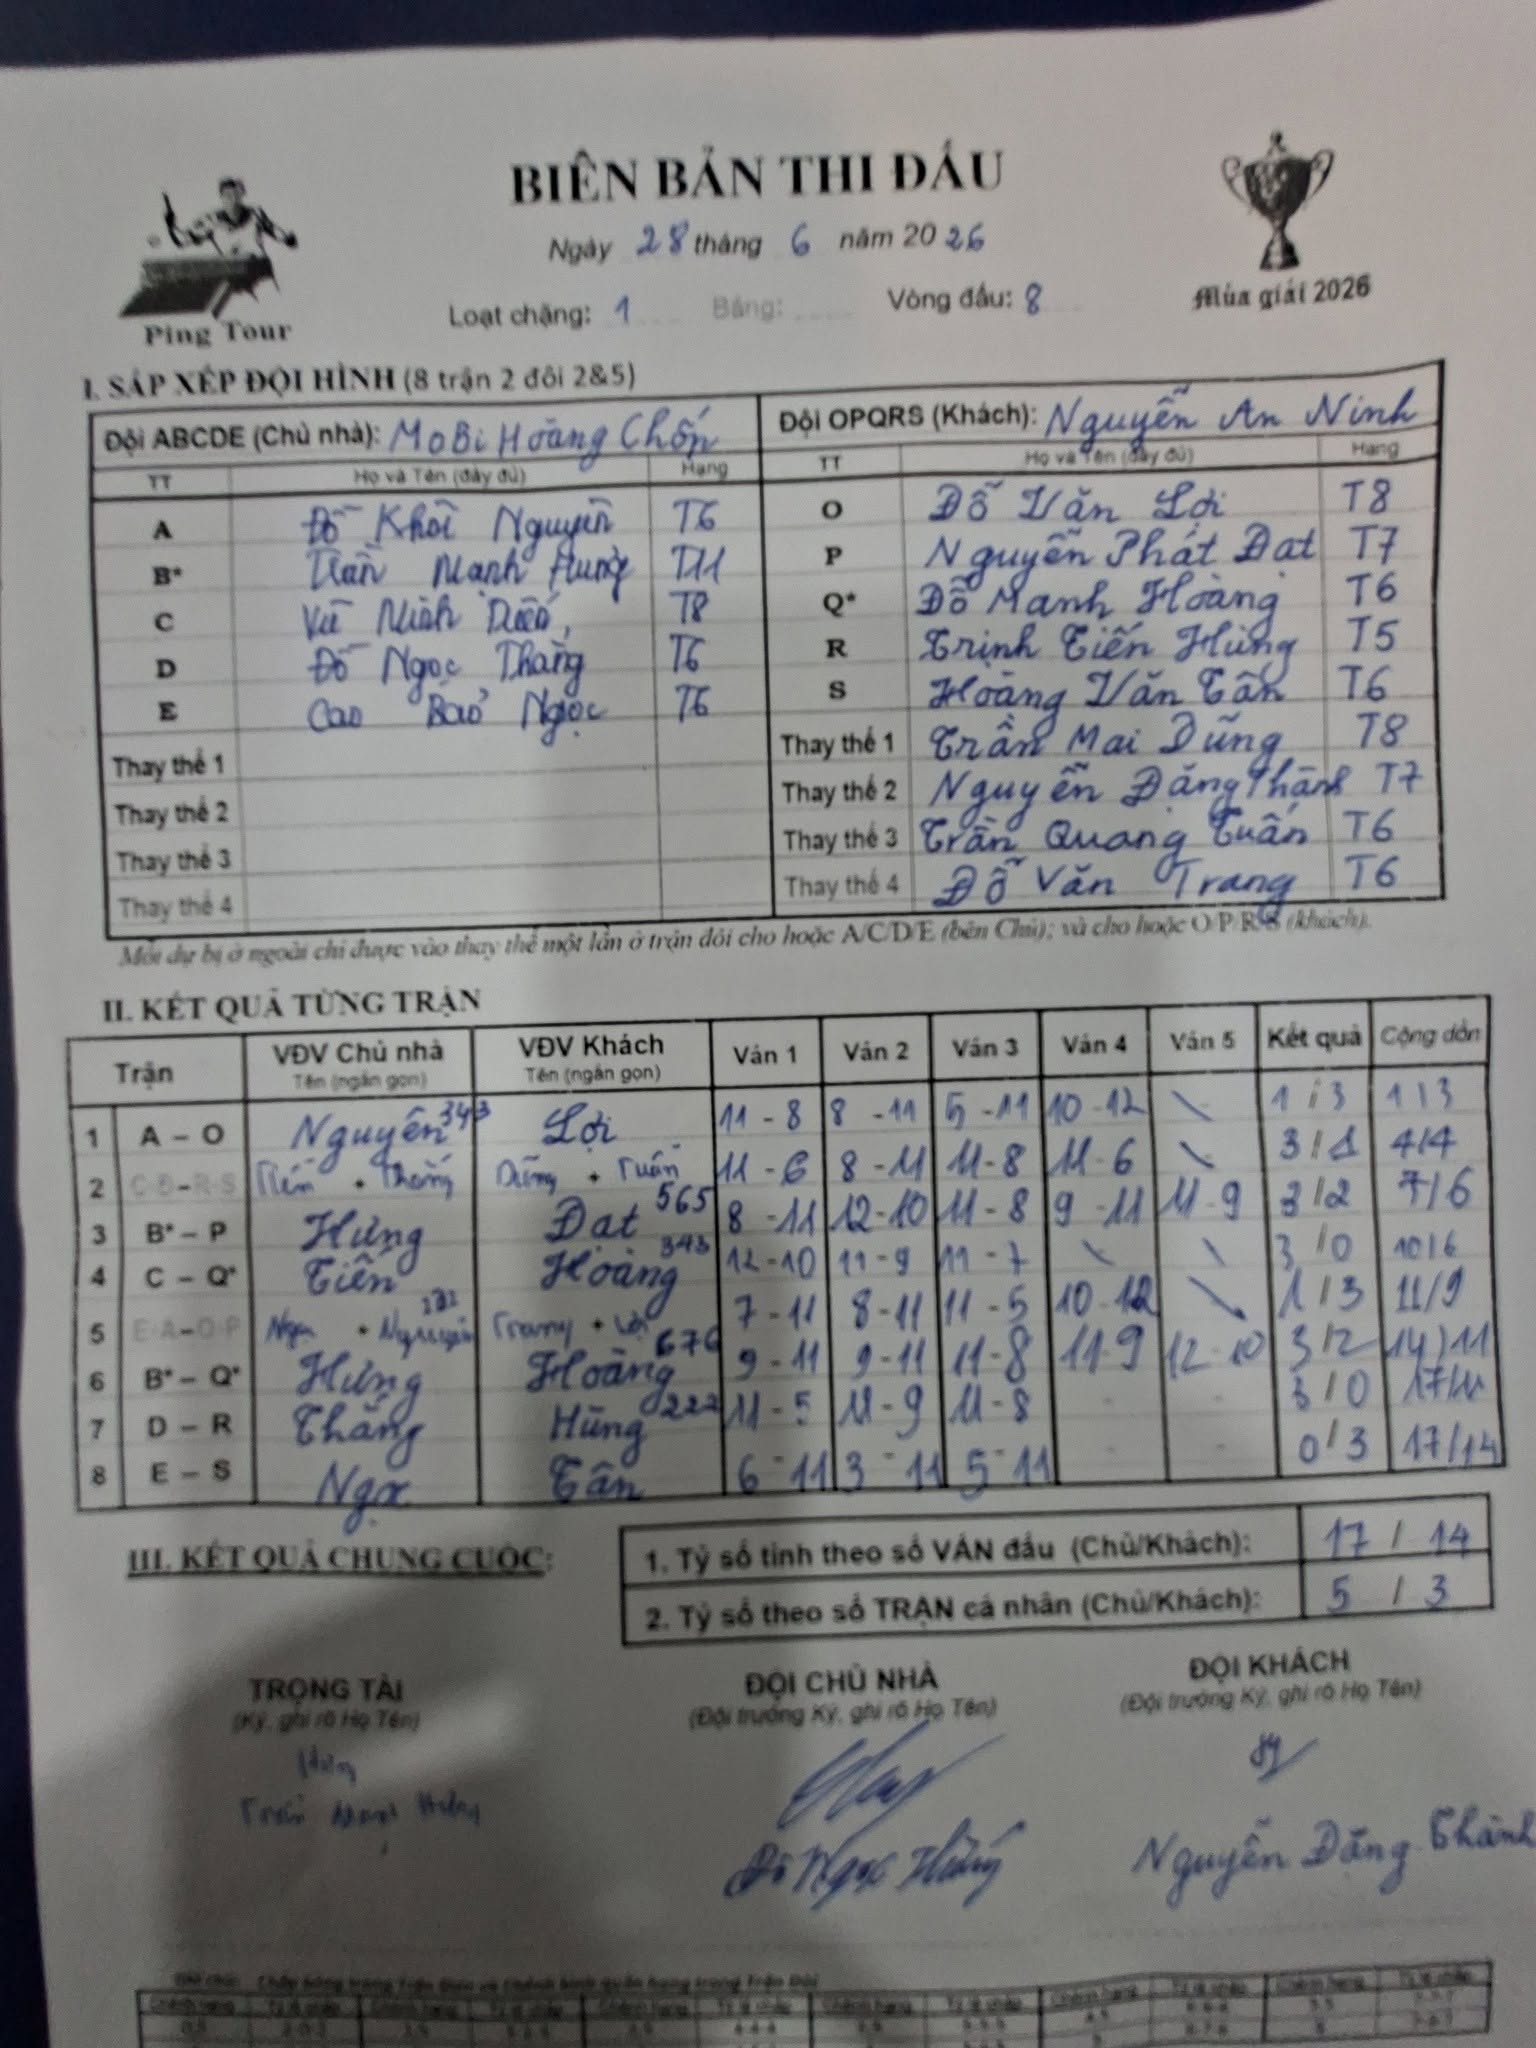 BIÊN BẢN THI ĐẤU
Ngày 28 tháng 6 năm 2026
Ping Tour
Loạt chặng: 1 Bảng: Vòng đấu: 8
Mùa giải 2026
I. SẮP XẾP ĐỘI HÌNH (8 trận 2 đôi 2&5)
Đội ABCDE (Chủ nhà): MoBi Hoàng Chốn Đội OPQRS (Khách): Nguyễn An Ninh
TT Họ và Tên (đầy đủ) Hạng TT Họ và Tên (đầy đủ) Hạng
A Đỗ Khôi Nguyên T6 O Đỗ Văn Lợi T8
B* Trần Mạnh Hưng T11 P Nguyễn Phát Đạt T7
C Vũ Minh T8 Q* Đỗ Mạnh Hoàng T6
D Đỗ Ngọc Thắng T6 R Trịnh Tiến Hùng T5
E Cao Bảo Ngọc T6 S Hoàng Văn Tấn T6
Thay thế 1 Thay thế 1 Trần Mai Dũng T8
Thay thế 2 Thay thế 2 Nguyễn Đặng Thành T7
Thay thế 3 Thay thế 3 Trần Quang Tuấn T6
Thay thế 4 Thay thế 4 Đỗ Văn Trang T6
Mỗi dự bị ở ngoài chỉ được vào thay thế một lần ở trận đôi cho hoặc A/C/D/E (bên Chủ); và cho hoặc O/P/R/S (khách).
II. KẾT QUẢ TỪNG TRẬN
Trận VĐV Chủ nhà Tên (ngắn gọn) VĐV Khách Tên (ngắn gọn) Ván 1 Ván 2 Ván 3 Ván 4 Ván 5 Kết quả Cộng dồn
1 A – O Nguyên 343 Lợi 11 - 8 8 - 11 5 - 11 10 - 12 \ 1 / 3 1 / 3
2 C-D–R-S Tiến + Thắng Dũng + Tuấn 11 - 6 8 - 11 11 - 8 11 - 6 \ 3 / 1 4/4
3 B* – P Hưng Đạt 565 8 - 11 12 - 10 11 - 8 9 - 11 11 - 9 3 / 2 7 / 6
4 C – Q* Tiến Hoàng 343 12 - 10 11 - 9 11 - 7 \ \ 3 / 0 10/6
5 E-A–O-P Ngọc + Nguyên 222 Trang + Lợi 7 - 11 8 - 11 11 - 5 10 - 12 \ 1 / 3 11/9
6 B* – Q* Hưng Hoàng 676 9 - 11 9 - 11 11 - 8 11 - 9 12 - 10 3 / 2 14 / 11
7 D – R Thắng Hùng 222 11 - 5 11 - 9 11 - 8 - - 3 / 0 17/11
8 E – S Ngọc Tấn 6 - 11 3 - 11 5 - 11 - - 0 / 3 17/14
III. KẾT QUẢ CHUNG CUỘC:
1. Tỷ số tính theo số VÁN đấu (Chủ/Khách): 17 / 14
2. Tỷ số theo số TRẬN cá nhân (Chủ/Khách): 5 / 3
TRỌNG TÀI ĐỘI CHỦ NHÀ ĐỘI KHÁCH
(Ký, ghi rõ Họ Tên) (Đội trưởng Ký, ghi rõ Họ Tên) (Đội trưởng Ký, ghi rõ Họ Tên)
Hưng
Trần Mạnh Hưng Đỗ Ngọc Thắng Nguyễn Đặng Thành